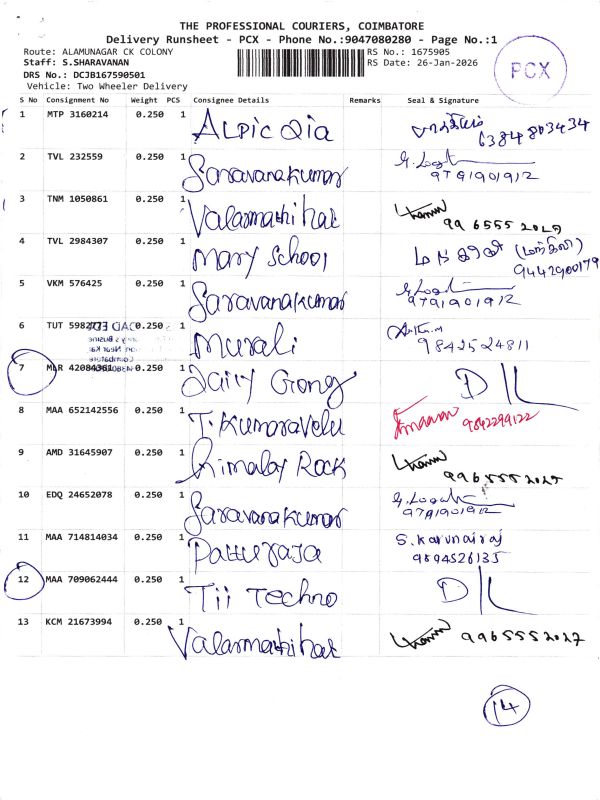 THE PROFESSIONAL COURIERS, COIMBATORE
Delivery Runsheet - PCX - Phone No.:9047080280 - Page No.:1
Route: ALAMUNAGAR CK COLONY
RS No.: 1675905
Staff: S.SHARAVANAN
RS Date: 26-Jan-2026
DRS No.: DCJB167590501
Vehicle: Two Wheeler Delivery
PCX
S No Consignment No Weight PCS Consignee Details Remarks Seal & Signature
1 MTP 3160214 0.250 1 Alpic Qia 6384803434
2 TVL 232559 0.250 1 Saravanakumar 9791901912
3 TNM 1050861 0.250 1 Valarmathihat 9965552027
4 TVL 2984307 0.250 1 Mary School 9442900179
5 VKM 576425 0.250 1 Saravanakumar 9791901912
6 TUT 0.250 1 Murali 9842524811
7 MLR 42084361 0.250 1 Dairy Gong DIL
8 MAA 652142556 0.250 1 T.Kumaravelu 9842299122
9 AMD 31645907 0.250 1 Himalay Rock 9965552027
10 EDQ 24652078 0.250 1 Saravanakumar 9791901912
11 MAA 714814034 0.250 1 Patturaja S. Karunairaj
9894526135
12 MAA 709062444 0.250 1 Tii Techno DIL
13 KCM 21673994 0.250 1 Valarmathihat 9965552027
14